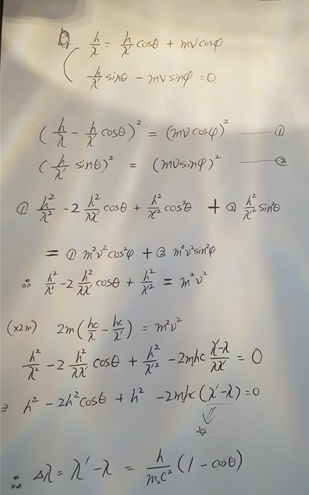 h/λ = h/λ' cosθ + mv cosφ
h/λ' sinθ − mv sinφ = 0
(h/λ − h/λ' cosθ)² = (mv cosφ)² —— ①
(h/λ' sinθ)² = (mv sinφ)² —— ②
① h²/λ² − 2 h²/λλ' cosθ + h²/λ'² cos²θ + ② h²/λ'² sin²θ
= ① m²v² cos²φ + ② m²v² sin²φ
∴ h²/λ² − 2 h²/λλ' cosθ + h²/λ'² = m²v²
(×2m) 2m(hc/λ − hc/λ') = m²v²
h²/λ² − 2 h²/λλ' cosθ + h²/λ'² − 2mhc (λ'−λ)/λλ' = 0
h² − 2h² cosθ + h² − 2mhc(λ'−λ) = 0
∴ Δλ = λ' − λ = h/m₀c² (1 − cosθ)